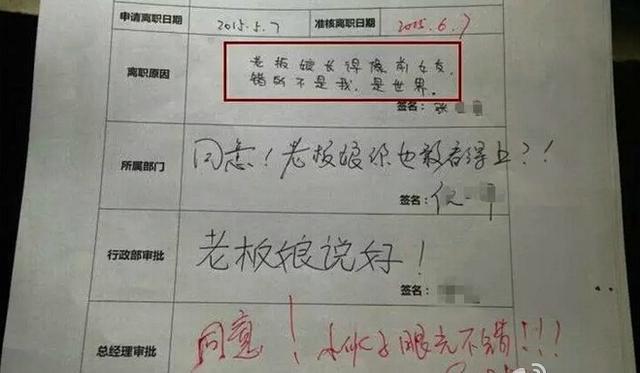 申请离职日期 2015.5.7 准核离职日期 2015.6.7
离职原因
老板娘长得像前女友,
错的不是我,是世界。
签名: 张
所属部门
同意!老板娘你也敢看得上?!
签名:
行政部审批
老板娘说好!
签名:
总经理审批
同意!小伙子眼光不错!!!